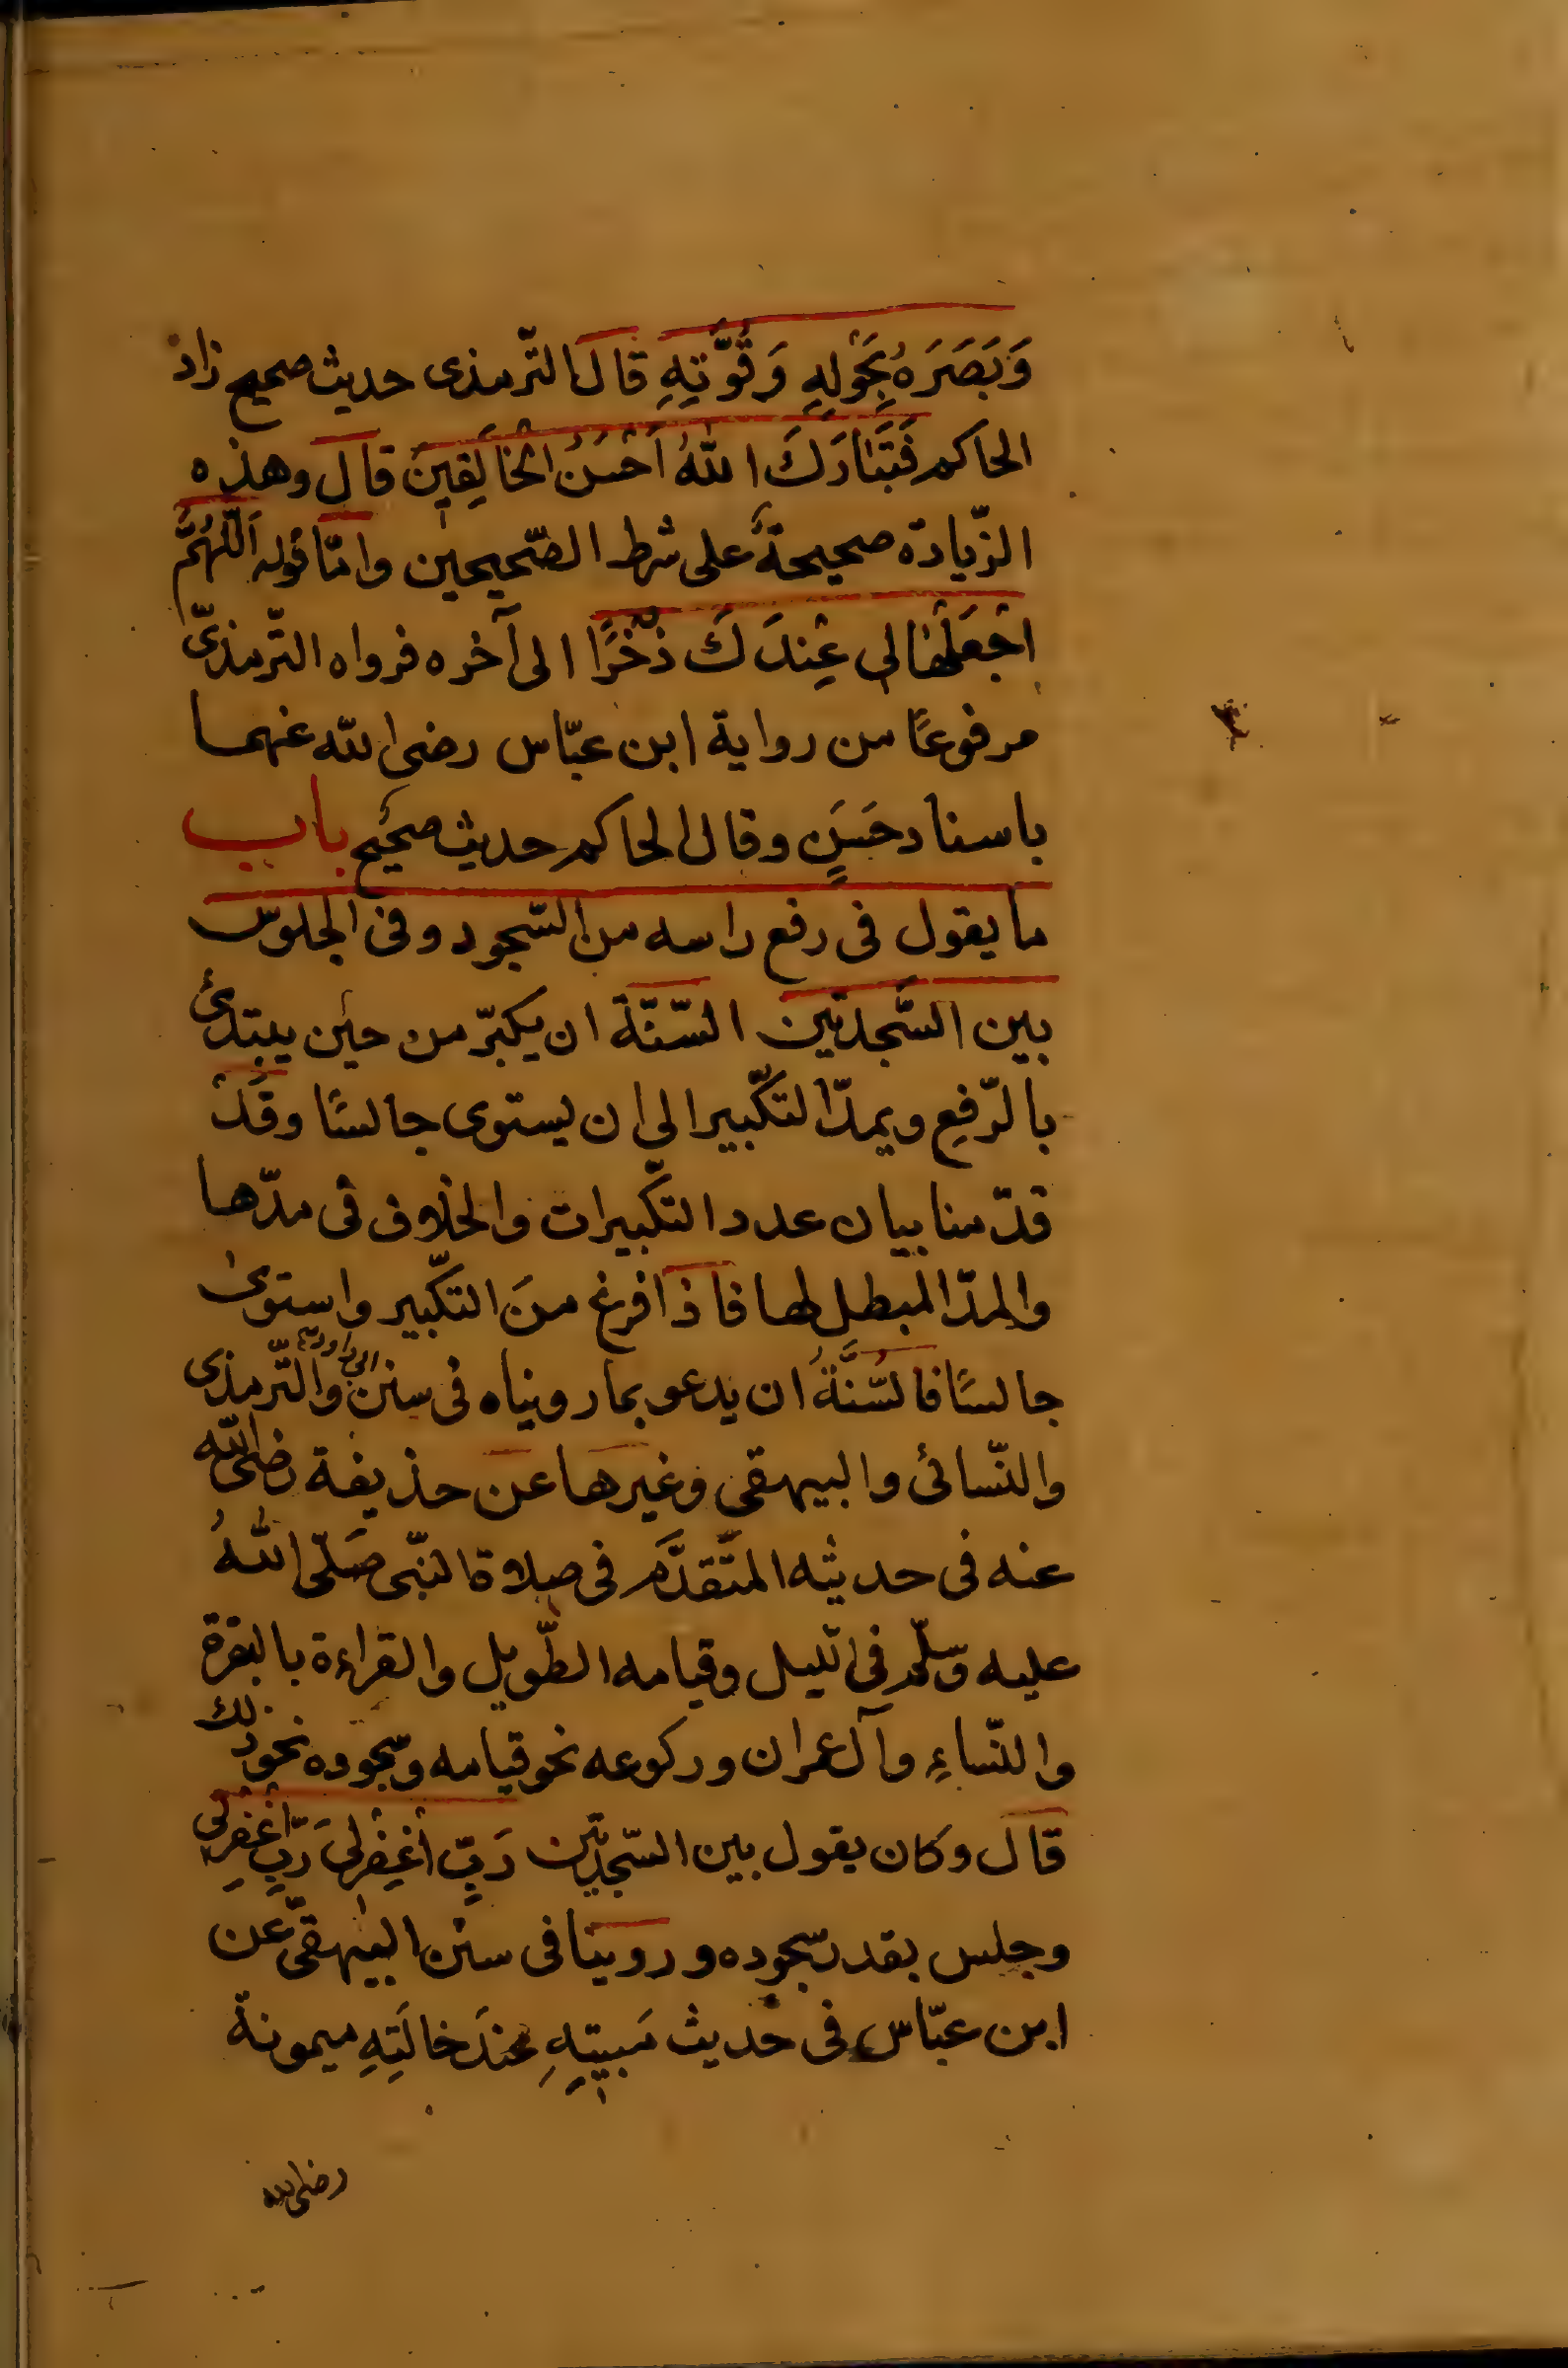 وَبَصَرَهُ بِحَوْلِهِ وَقُوَّتِهِ قال الترّمذى حديث صحيح زاد
الحاكم فَتَبَارَكَ اللهُ اَحْسَنُ الْخَالِقِينَ قال وهذه
الزّيادة صحيحة على شرط الصّحيحين وامّا قوله اَللّهُمَّ
اجْعَلْهَا لى عِنْدَكَ ذُخْرًا الى آخره فرواه الترّمذىّ
مرفوعًا من رواية ابن عبّاس رضى الله عنهما
باسناد حَسَنٍ وقال الحاكم حديث صحيح باب
ما يقول فى رفع راسه من السّجود وفى الجلوس
بين السَّجدتين السّنّة ان يكبّر من حين يبتدئ
بالرّفع ويمدّ التكّبير الى ان يستوى جالسًا وقَدْ
قدّمنا بيان عدد التكّبيرات والخلاف فى مدّها
والمدّ المبطل لها فاذا فرغ منَ التكّبير واستوى
جالسًا فالسُّنَّةُ ان يدعو بما رويناه فى سنن ابى داود والترّمذى
والنّسائى والبيهقى وغيرها عن حذيفة رضى الله
عنه فى حديثه المتقدَّم فى صلاة النبّى صَلّى اللهُ
عليه وسلّم فى الليل وقيامه الطّويل والقراءة بالبقرة
والنّساءِ وآل عمران وركوعه نحو قيامه وسجوده نحو ذلك
قال وكان يقول بين السّجدتين رَبِّ اغْفِرْلى رَبِّ اغْفِرْلى
وجلس بقدر سجوده وروينا فى سنن البيهقىّ عن
ابن عبّاس فى حديث مَبيتِهِ عندَ خالَتِهِ ميمونة
رضى الله